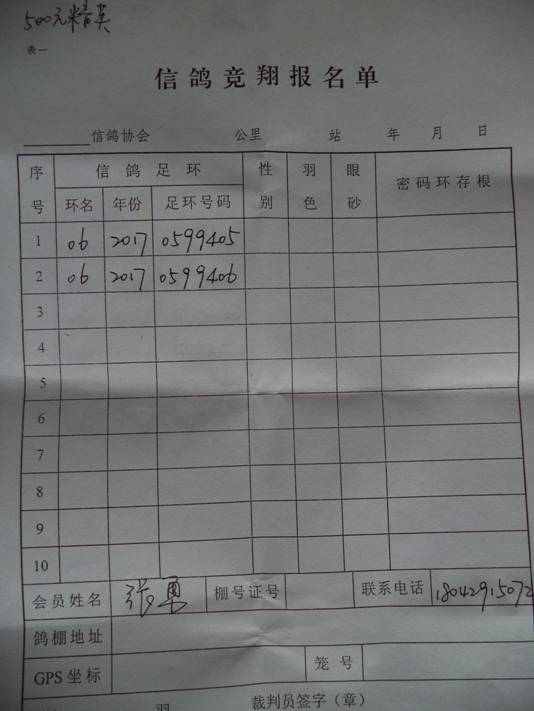 500元精英
表一
信鸽竞翔报名单
________信鸽协会 公里 站 年 月 日
序号 信鸽足环 性别 羽色 眼砂 密码环存根
环名 年份 足环号码
1 06 2017 0599405
2 06 2017 0599406
3
4
5
6
7
8
9
10
会员姓名 张勇 棚号证号 联系电话 18042915072
鸽棚地址
GPS坐标 笼号
羽 裁判员签字（章）